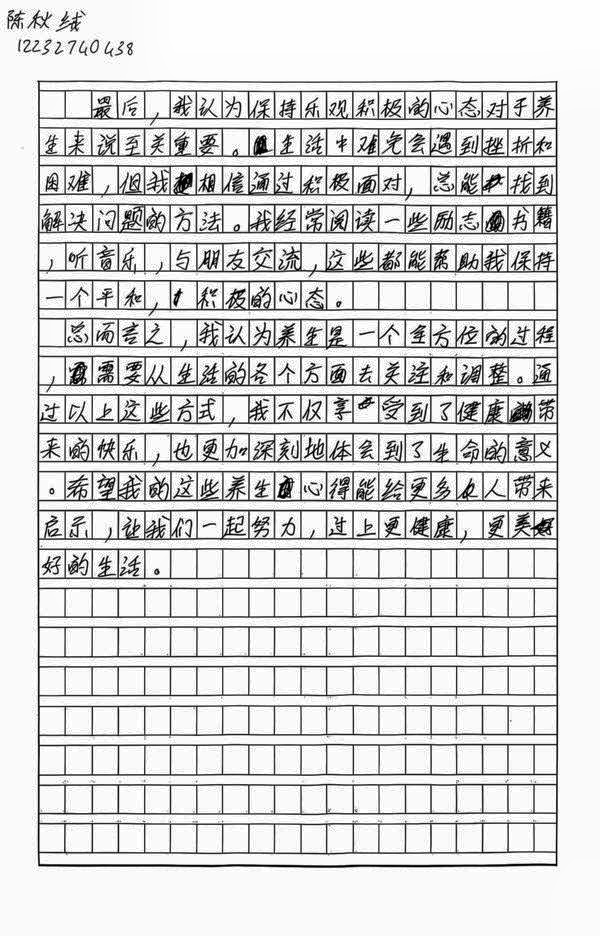 陈秋绒
12232740438
最后，我认为保持乐观积极的心态对于养
生来说至关重要。生活中难免会遇到挫折和
困难，但我相信通过积极面对，总能找到
解决问题的方法。我经常阅读一些励志书籍
，听音乐，与朋友交流，这些都能帮助我保持
一个平和，积极的心态。
总而言之，我认为养生是一个全方位的过程
，需要从生活的各个方面去关注和调整。通
过以上这些方式，我不仅享受到了健康带
来的快乐，也更加深刻地体会到了生命的意义
。希望我的这些养生心得能给更多人带来
启示，让我们一起努力，过上更健康，更美
好的生活。